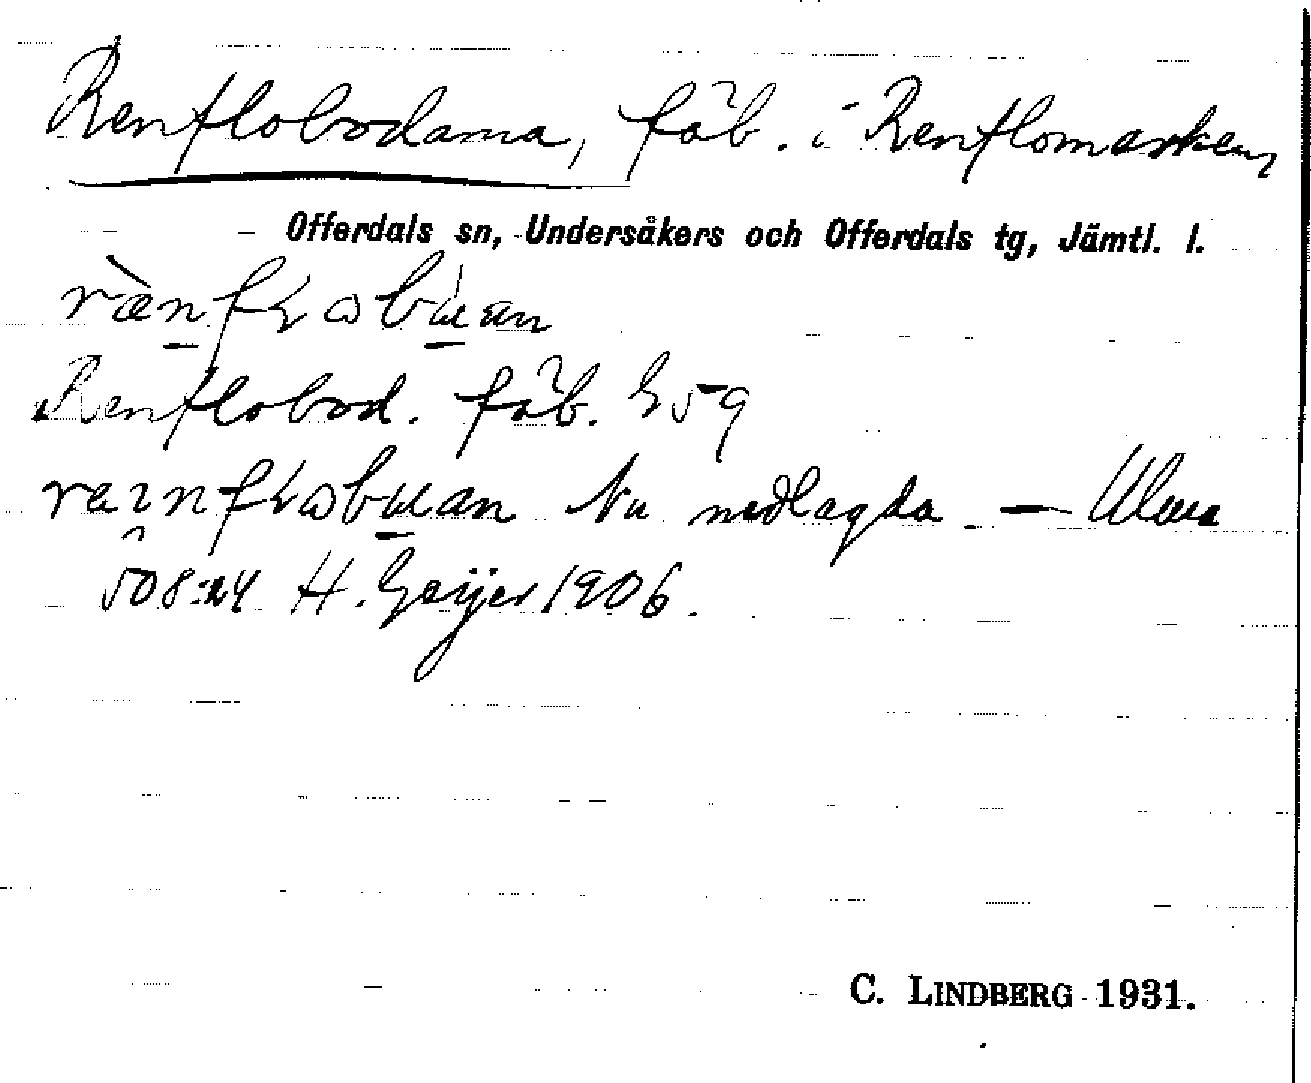 Renflobodarna, fäb. i Renflomarken
Offerdals sn, Undersåkers och Offerdals tg, Jämtl. l.
Renflobod. fäb. G59
Nu nedlagda —
508:24 H. Geijer 1906.
C. LINDBERG 1931.